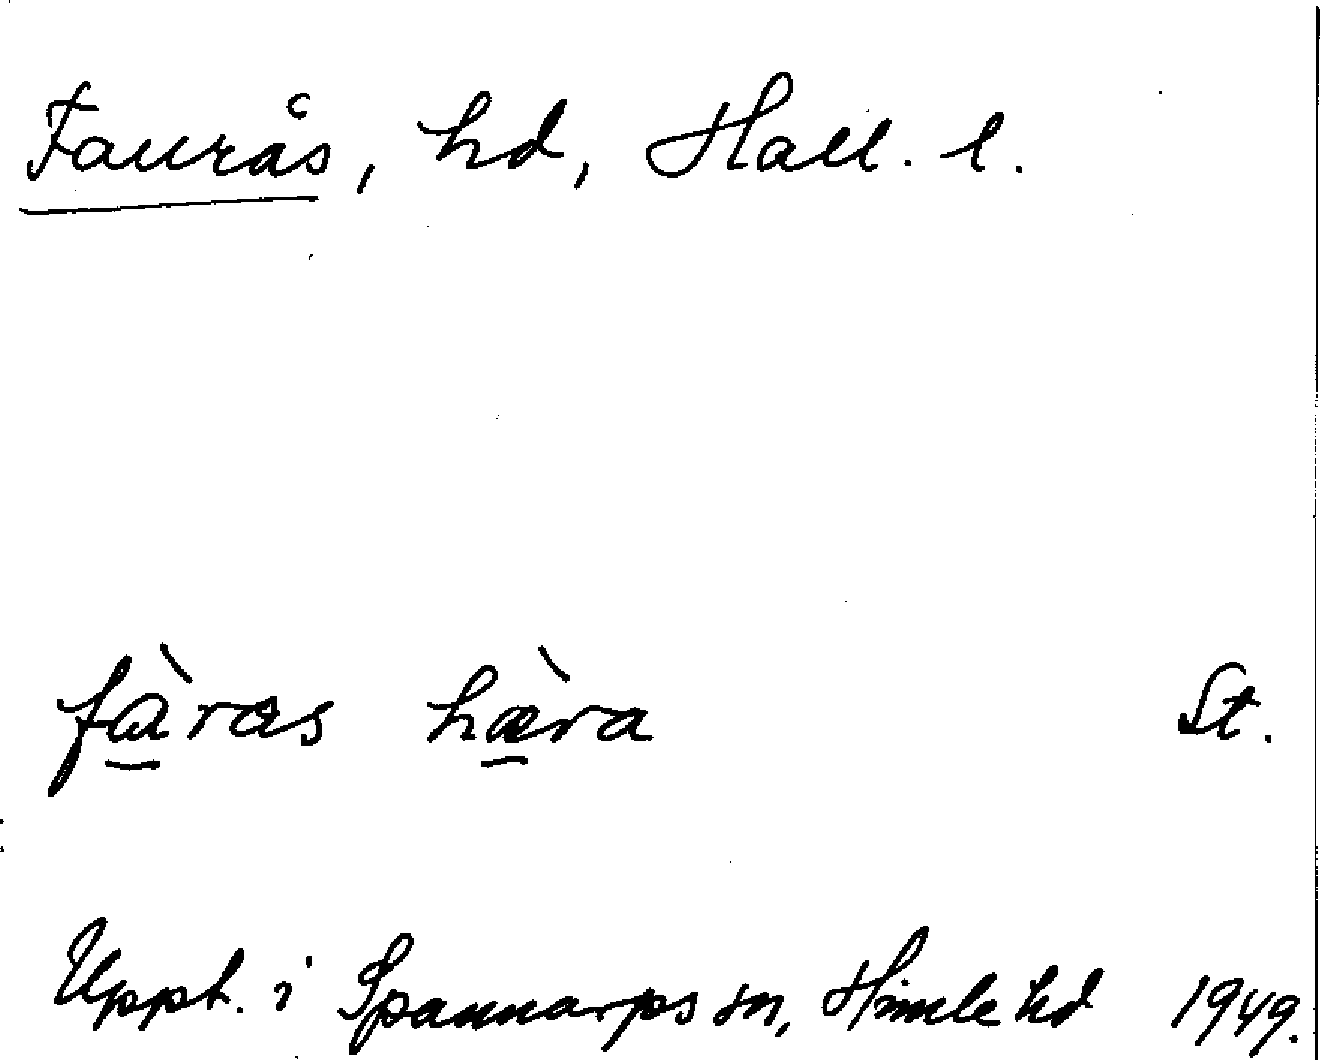 Faurås, hd, Hall. l.
fà̠̠ras hæ̠̀ra St.
Uppt. i Spannarps sn, Himle hd 1949.